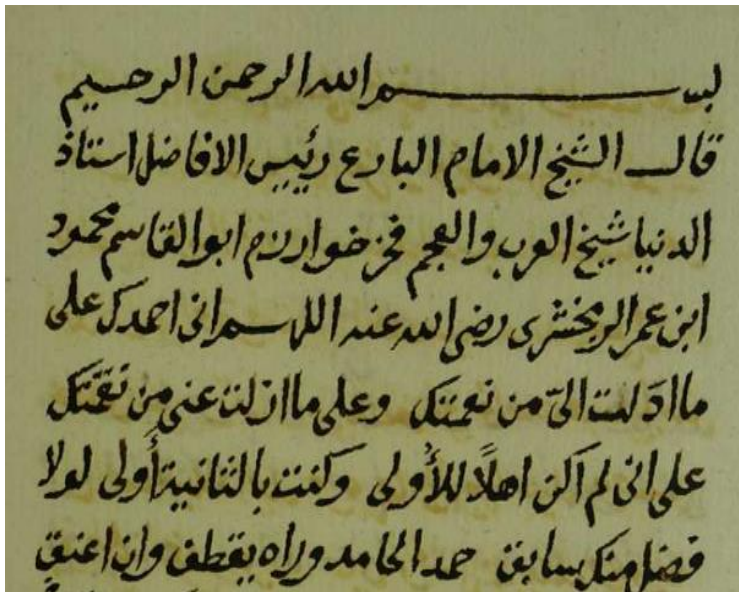 بسم الله الرحمن الرحيم
قال الشيخ الامام البارع رئيس الافاضل استاذ
الدنيا شيخ العرب والعجم فخر خوارزم ابو القاسم محمود
ابن عمر الزمخشرى رضى الله عنه اللهم انى احمدك على
ما ادلت الىّ من نعمتك وعلى ما ازلت عنى من نقمتك
على انى لم اكن اهلاً للأولى وكنت بالثانية أولى لولا
فضل منك سابق حمد الحامد وراه يقطف وان اعنق